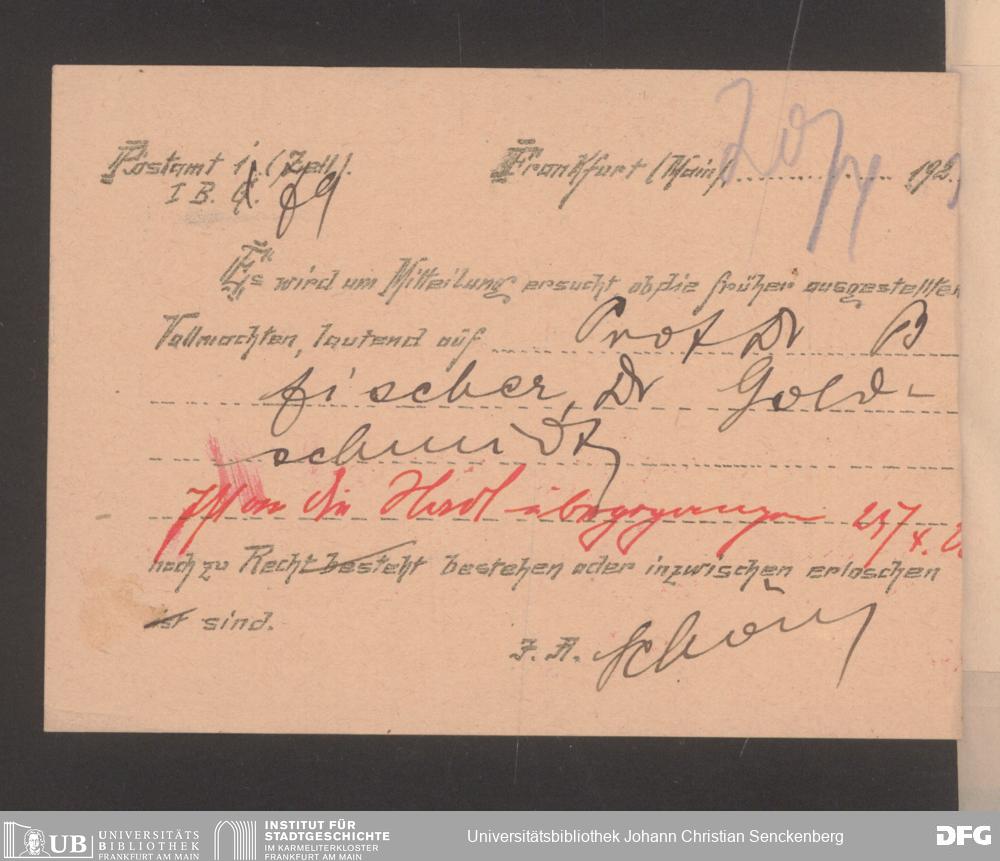 Postamt 1. (Zeil). Frankfurt (Main), 20/4 192
I B. G. 89
Es wird um Mitteilung ersucht ob die früher ausgestellten
Vollmachten, lautend auf Prof Dr B
fischer, Dr Gold-
schmidt
Ist an die Stadt übergegangen
noch zu Recht besteht bestehen oder inzwischen erloschen
ist sind.
I. A. Schön
UB UNIVERSITÄTS
BIBLIOTHEK
FRANKFURT AM MAIN
INSTITUT FÜR
STADTGESCHICHTE
IM KARMELITERKLOSTER
FRANKFURT AM MAIN
Universitätsbibliothek Johann Christian Senckenberg
DFG